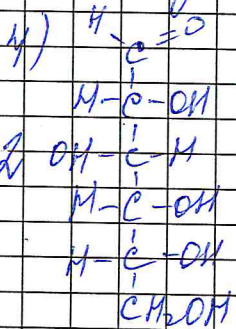 4) H C =O
H-C-OH
2 OH-C-H
H-C-OH
H-C-OH
CH₂OH